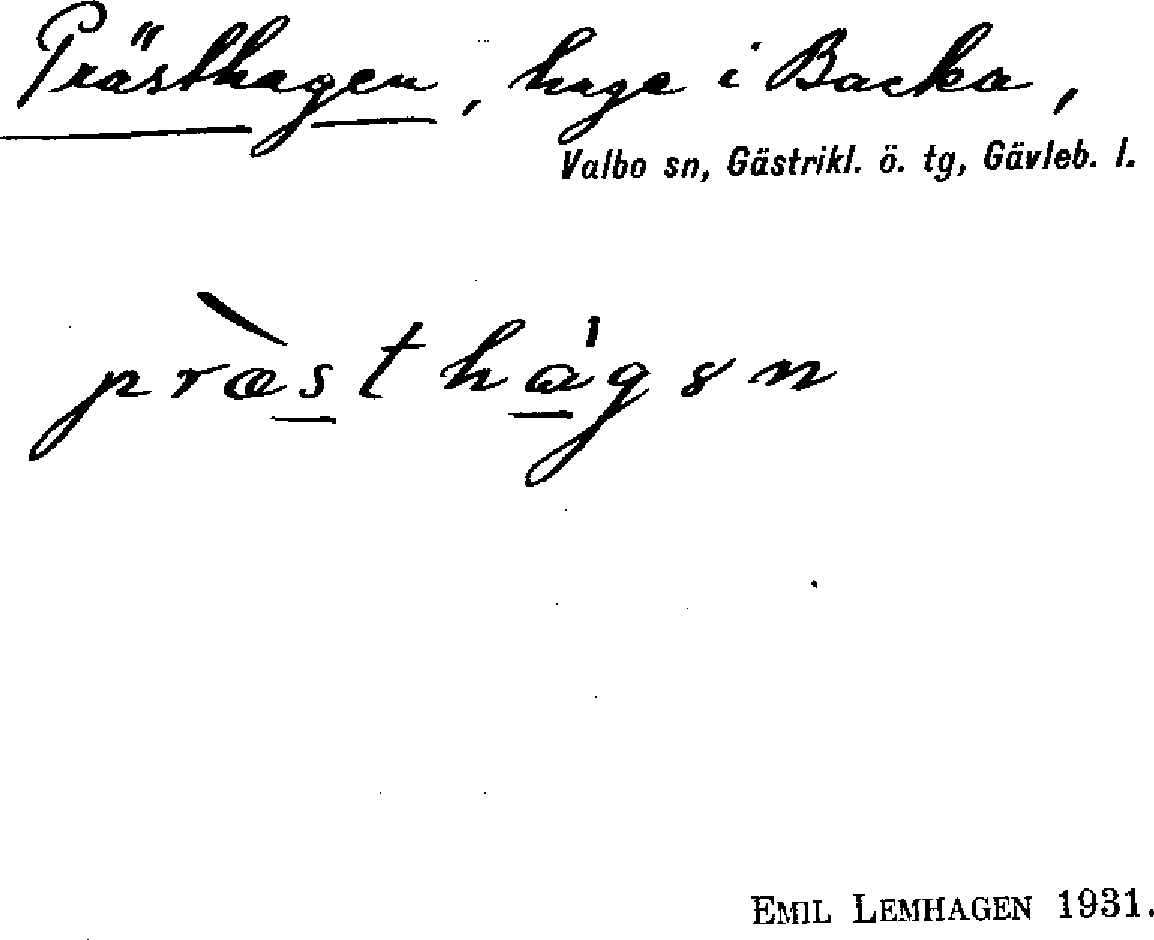 Prästhagen, hage i Backa,
Valbo sn, Gästrikl. ö. tg, Gävleb. l.
præ̀sthágən
EMIL LEMHAGEN 1931.